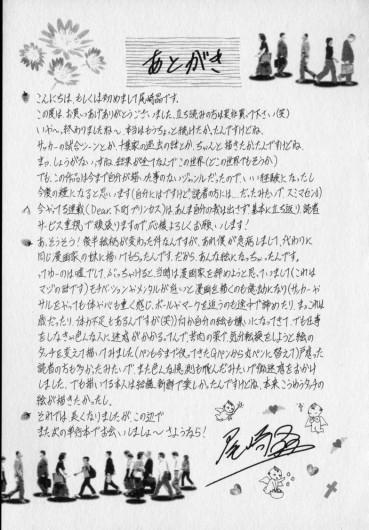 あとがき
こんにちは、もしくは初めまして尾崎晶です。
この度は、お買いあげありがとうございました。立ち読みの方は是非買って下さい(笑)
いや〜、終わりましたね〜、本当はもうちょっと続けたかったんですけどね、
サッカーの試合シーンとか、千葉家の過去の話とか、ちゃんと描きたかったんですけどね、
まっ、しょうがないっすね、結果が全てなんでこの世界(どこの世界でもそうか)
でも、この作品は今まで自分が描いた事のないジャンルだったので、いい経験になったし
今後の糧になると思います(自分にはですけど読者の方には…だったみたいで、スミマセン)
今やってる連載(Dear.下町プリンセス)は、あんま自分の我は出さず基本に立ち返り、読者
サービス重視で頑張りますので応援よろしくお願いします!
あ、そうそう!後半絵柄が変わった件なんですが、あれ僕が急病しまして、代わりに
同じ漫画家の妹に描いてもらったんです。だから、あんな絵になっちゃったんです。
ってカーのは嘘でして、ぶっちゃけると、当時は漫画家を辞めようと思っていまして(これは
マジの話です)モチベーションやメンタルが悪いと漫画を描くのも億劫になり(サッカーや
をしなきゃ色んな人に迷惑がかかる。ってんで、苦肉の策で、気分転換をしようと絵の
タッチを変えて描いてみました(ペンも今まで使ってきたGペンから丸ペンに替えて)戸惑った
読者の方も多かったみたいで、また色んな憶測も飛んだみたいで御迷惑をおかけ
しました。でも描いてる本人は結構、新鮮で楽しかったんですけどね、本来こうゆうタッチの
絵が描きたかったし。
それでは、長くなりましたが、この辺で
また次の単行本でお会いしましょ〜さようなら!